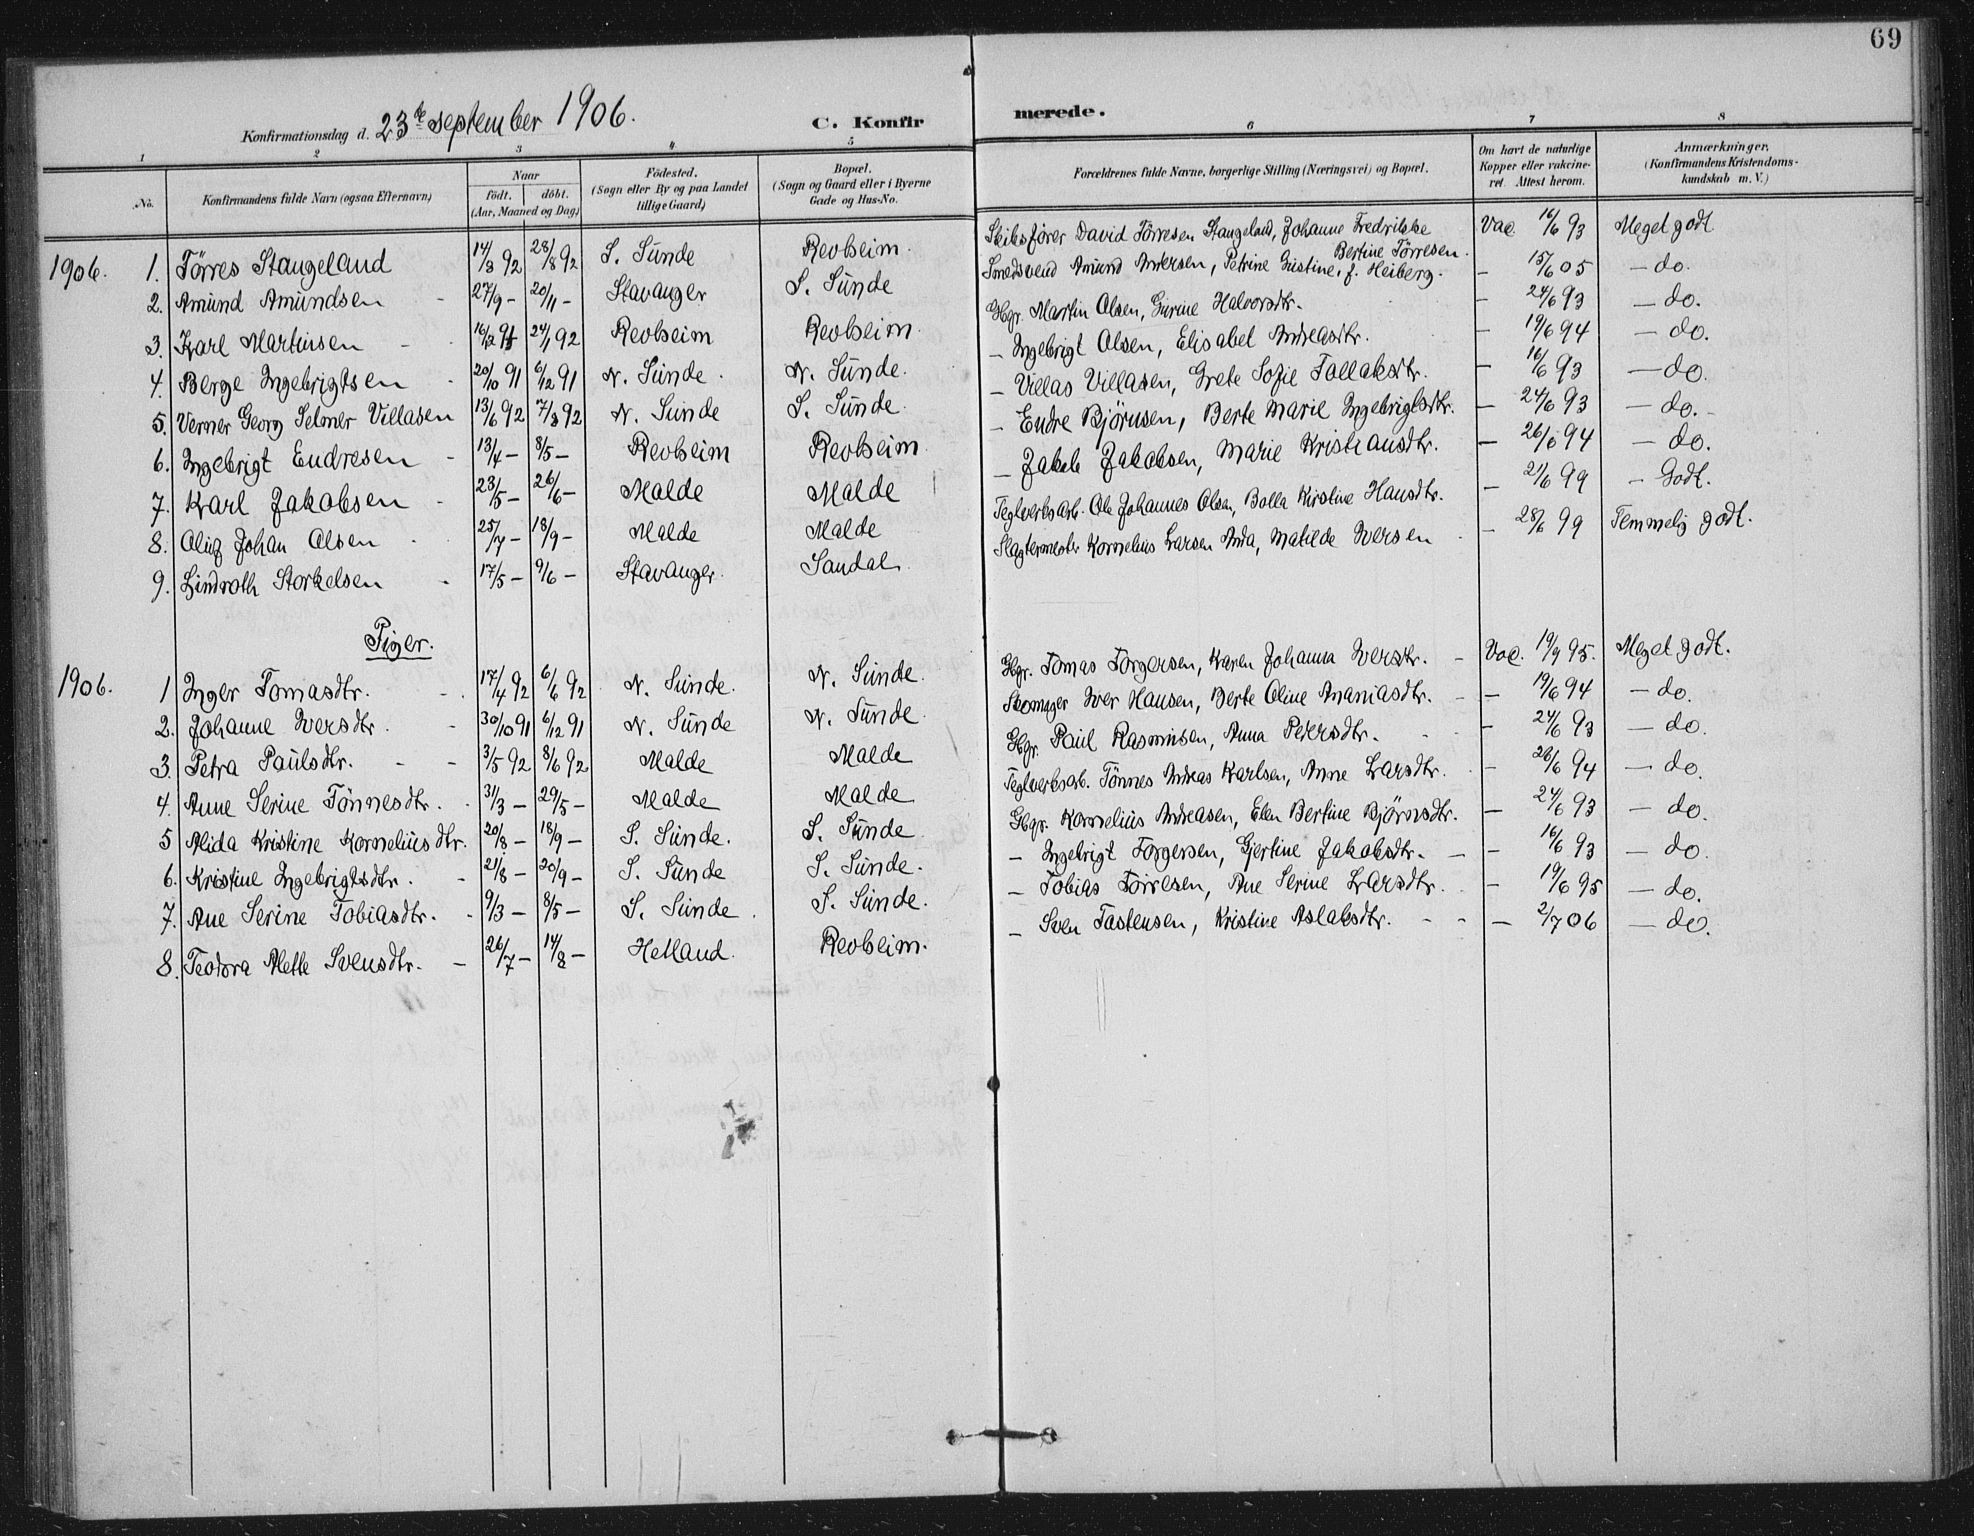 69
Konfirmationsdag d. 23de september 1906. C. Konfirmerede.
1 2 3 4 5 6 7 8
No. Konfirmandens fulde Navn (ogsaa Efternavn) Naar födt. döbt. (Aar, Maaned og Dag) Födested. (Sogn eller By og paa Landet tillige Gaard) Bopæl. (Sogn og Gaard eller i Byerne Gade og Hus-No. Forældrenes fulde Navne, borgerlige Stilling (Næringsvei) og Bopæl. Om havt de naturlige Kopper eller vakcineret. Attest herom. Anmærkninger. (Konfirmandens Kristendomskundskab m. V.)
1906. 1. Törres Stangeland 14/8 92 28/8 92 S. Sunde Revheim. Skibsfører David Törresen Stangeland, Johanne Fredrikke Bertine Törresen. Vac. 16/6 93 Meget godt
2. Amund Amundsen - 27/9 - 20/11 - Stavanger S. Sunde Smedsvend Amund Andersen, Petrine Gustine, f. Heiberg. - 15/6 05 - do.
3. Karl Martinsen - 16/12 91 24/1 92 Revheim Revheim. Gbgr. Martin Olsen, Gurine Halvorsdtr. - 24/6 93 - do.
4. Berge Ingebrigtsen - 20/10 91 6/12 91 N. Sunde. N. Sunde. - Ingebrigt Olsen, Elisabet Andreasdtr. - 19/6 94 - do.
5. Verner Georg Selmer Villasen 13/6 92 7/8 92 N. Sunde S. Sunde. - Villas Villasen, Grete Sofie Tollaksdtr. - 16/6 93 - do.
6. Ingebrigt Endresen - 13/4 - 8/5 - Revheim Revheim. - Endre Björnsen, Berte Marie Ingebrigtsdtr. - 24/6 93 - do. -
7. Karl Jakobsen - 23/5 - 26/6 - Malde Malde - Jakob Jakobsen, Marie Kristiansdtr. - 26/6 94 - do.
8. Oluf Johan Olsen - 25/7 - 18/9 - Malde Malde Teglverksarb. Ole Johannes Olsen, Bolla Kirstine Hansdtr. - 21/6 99 - Godt.
9. Lindroth Storkelsen - 17/5 - 9/6 - Stavanger. Sandal. Slagtermester Kornelius Larsen Anda, Matilde Iversen - 28/6 99 Temmelig godt.
Piger.
1906. 1 Inger Tomasdtr. - 17/4 92 6/6 92 N. Sunde. N. Sunde. Gbgr. Tomas Torgersen, Karen Johanna Iversdtr. - Vac. 19/9 95. Meget godt.
2. Johanne Iversdtr. - 30/10 91 6/12 91 N. Sunde N. Sunde. Skomager Iver Hansen, Berte Oline Ananiasdtr. - - 19/6 94 - do.
3. Petra Paulsdtr. - - 3/5 92 8/6 92 Malde Malde Gbgr. Paul Rasmusen, Anna Pedersdtr. - - 24/6 93 - do.
4. Anne Serine Tönnesdtr. - 31/3 - 29/5 - Malde Malde Teglverksarb. Tönnes Andreas Karlsen, Anne Larsdtr. - 26/6 94 - do.
5 Alida Kristine Korneliusdtr. 20/8 - 18/9 - S. Sunde. S. Sunde Gbgr. Kornelius Andreasen, Elen Bertine Björnsdtr. - 24/6 93 - do.
6. Kristine Ingebrigtsdtr. - 21/8 - 20/9 - S. Sunde S. Sunde. - Ingebrigt Torgersen, Gjertine Jakobsdtr. - - 16/6 93 - do.
7. Ane Serine Tobiasdtr. - 9/3 - 8/5 - S. Sunde. S. Sunde. - Tobias Törresen, Ane Serine Larsdtr. - 19/6 95 - do.
8. Teodora Mette Svensdtr. - 26/7 - 14/8 - Hetland. Revheim. - Sven Tastensen, Kristine Aslaksdtr. - - - 2/7 06 - do.